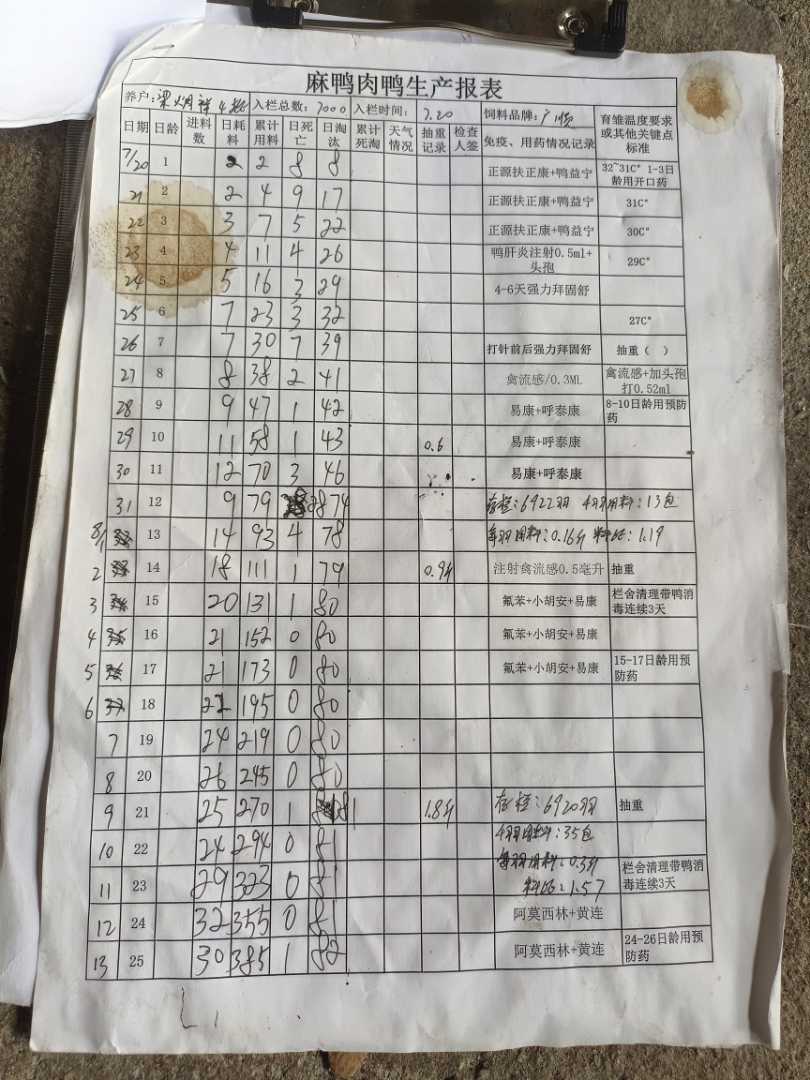 麻鸭肉鸭生产报表
养户: 4批 入栏总数: 7000 入栏时间: 7.20 饲料品牌: 广顺 育雏温度要求或其他关键点标准
日期 日龄 进料数 日耗料 累计用料 日死亡 日淘汰 累计死淘 天气情况 抽重记录 检查人签 免疫、用药情况记录
7/20 1 2 2 8 8 正源扶正康+鸭益宁 32~31C° 1-3日龄用开口药
21 2 2 4 9 17 正源扶正康+鸭益宁 31C°
22 3 3 7 5 22 正源扶正康+鸭益宁 30C°
23 4 4 11 4 26 鸭肝炎注射0.5ml+头孢 29C°
24 5 5 16 3 29 4-6天强力拜固舒
25 6 7 23 3 32 27C°
26 7 7 30 7 39 打针前后强力拜固舒 抽重（ ）
27 8 8 38 2 41 禽流感/0.3ML 禽流感+加头孢打0.52ml
28 9 9 47 1 42 易康+呼泰康 8-10日龄用预防药
29 10 11 58 1 43 0.6 易康+呼泰康
30 11 12 70 3 46 易康+呼泰康
31 12 9 79 28 74 存栏:6922羽 用料:13包
8/1 13 14 93 4 78 每羽用料:0.16斤 料比:1.19
2 14 18 111 1 79 0.9斤 注射禽流感0.5毫升 抽重
3 15 20 131 1 80 氟苯+小胡安+易康 栏舍清理带鸭消毒连续3天
4 16 21 152 0 80 氟苯+小胡安+易康
5 17 21 173 0 80 氟苯+小胡安+易康 15-17日龄用预防药
6 18 22 195 0 80
7 19 24 219 0 80
8 20 26 245 0 80
9 21 25 270 1 81 1.8斤 存栏:6920羽 抽重
10 22 24 294 0 81 用料:35包
11 23 29 323 0 81 每羽用料:0.3斤 料比:1.57 栏舍清理带鸭消毒连续3天
12 24 32 355 0 81 阿莫西林+黄连
13 25 30 385 1 82 阿莫西林+黄连 24-26日龄用预防药